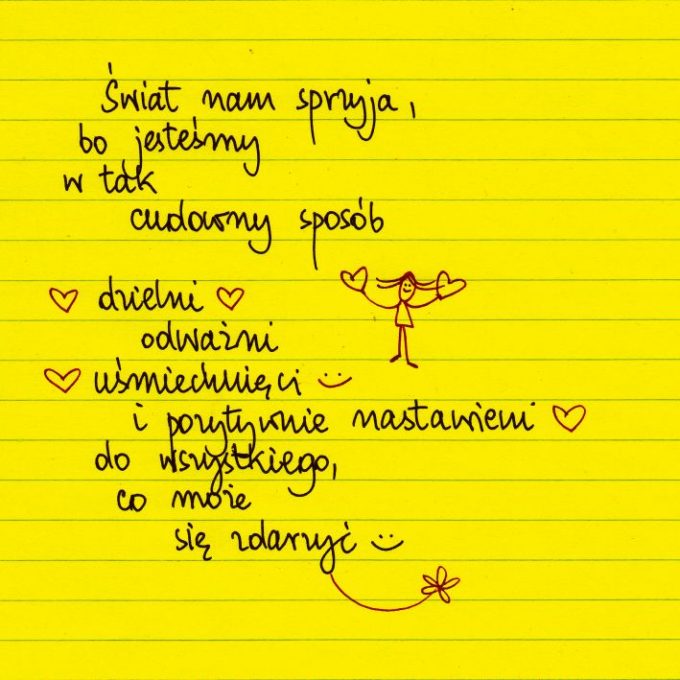 Świat nam sprzyja,
bo jesteśmy
w tak
cudowny sposób
dzielni
odważni
uśmiechnięci
i pozytywnie nastawieni
do wszystkiego,
co może
się zdarzyć